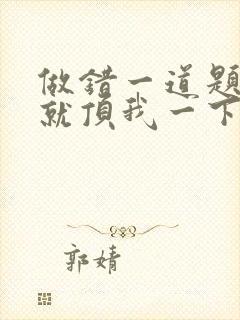 做錯一道題
就頂我一下
郭婧